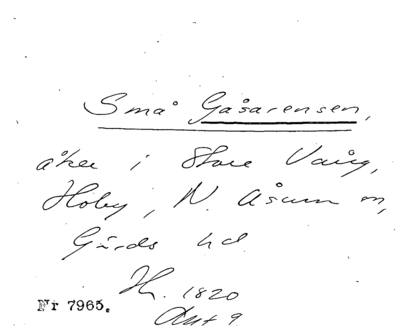 Små Gåsarensen,
åker i Store Vång,
Hoby, N. Åsum sn,
Gärds hd
H. 1820
Akt 9.
Nr 7965.